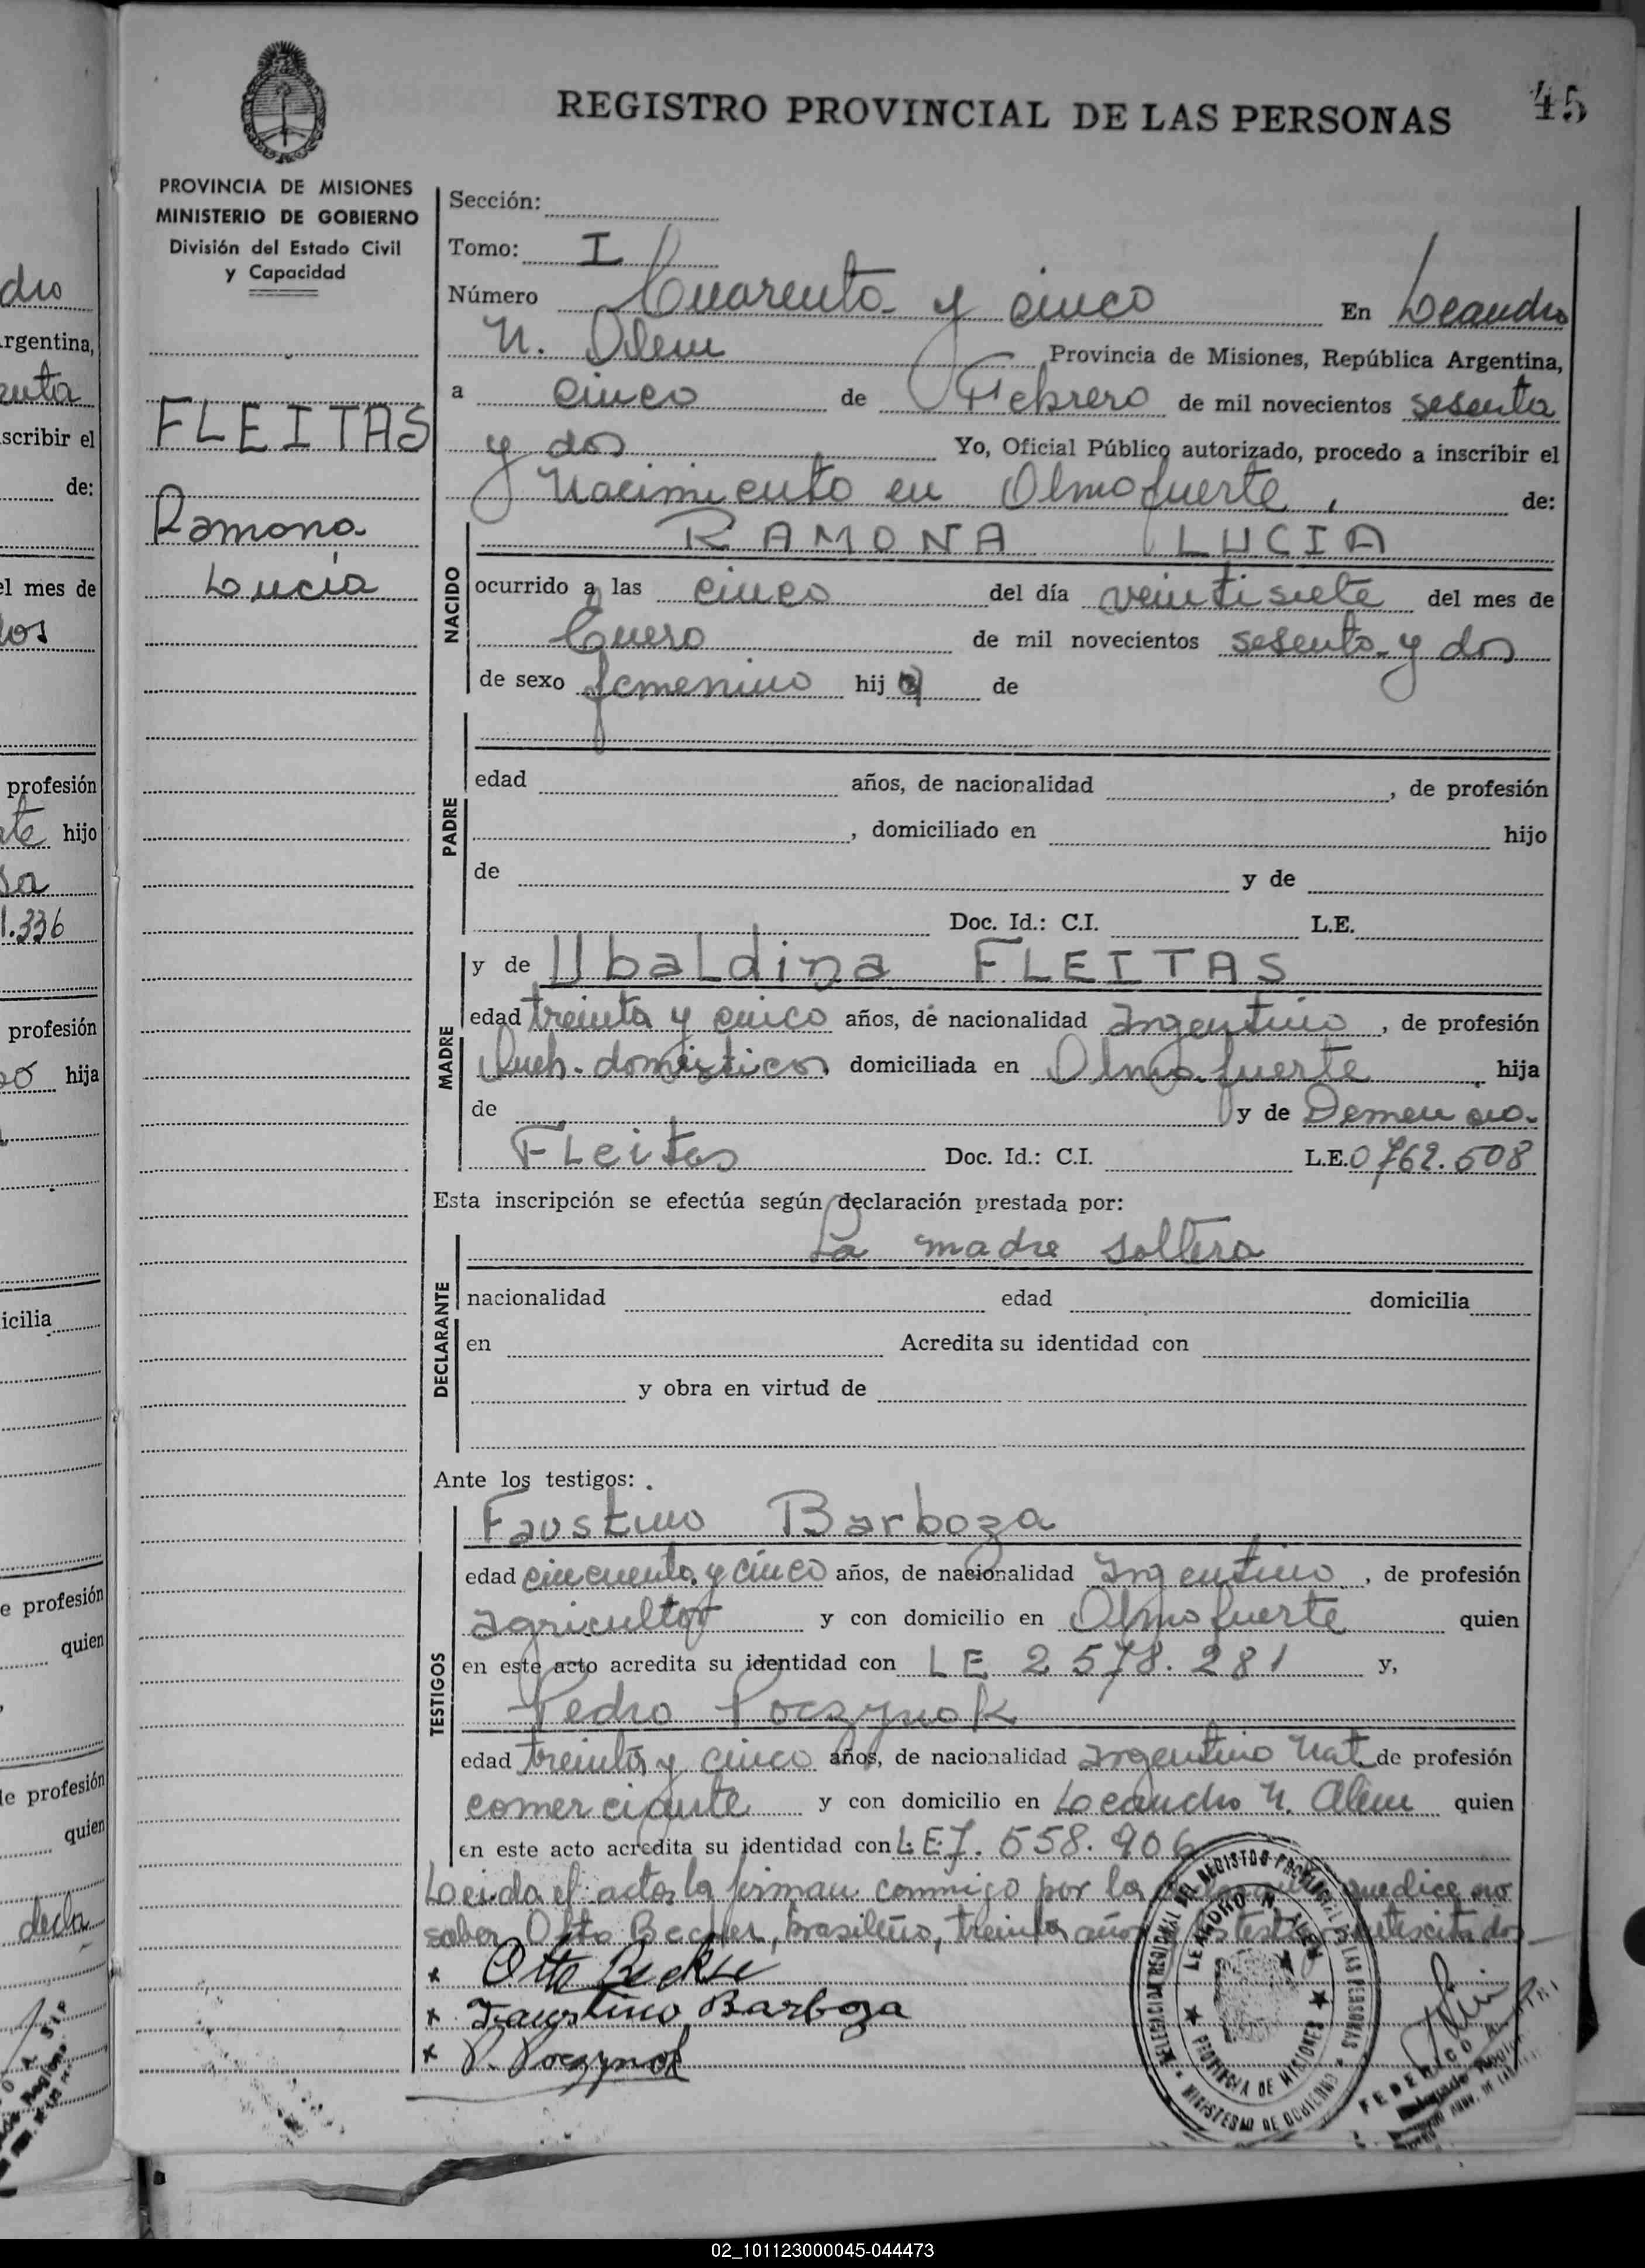 45
REGISTRO PROVINCIAL DE LAS PERSONAS
PROVINCIA DE MISIONES
MINISTERIO DE GOBIERNO
División del Estado Civil
y Capacidad
FLEITAS
Ramona
Lucía
Sección:
Tomo: I
Número Cuarenta y cinco En Leandro
N. Alem Provincia de Misiones, República Argentina,
a cinco de Febrero de mil novecientos sesenta
y dos Yo, Oficial Público autorizado, procedo a inscribir el
Nacimiento en Olmofuerte, de:
NACIDO
RAMONA LUCIA
ocurrido a las cinco del día veintisiete del mes de
Enero de mil novecientos sesenta y dos
de sexo femenino hij a de
PADRE
edad años, de nacionalidad , de profesión
, domiciliado en hijo
de y de
Doc. Id.: C.I. L.E.
MADRE
y de UbaLdina FLEITAS
edad treinta y cinco años, de nacionalidad argentino, de profesión
domésticos domiciliada en Olmofuerte hija
de y de
FLeitas Doc. Id.: C.I. L.E. 0762.508
Esta inscripción se efectúa según declaración prestada por:
DECLARANTE
La madre soltera
nacionalidad edad domicilia
en Acredita su identidad con
y obra en virtud de
Ante los testigos:
TESTIGOS
Faustino Barboza
edad cincuenta y cinco años, de nacionalidad argentino, de profesión
agricultor y con domicilio en Olmofuerte quien
en este acto acredita su identidad con LE 2578.281 y,
Pedro Poczynok
edad treinta y cinco años, de nacionalidad argentino Nat de profesión
comerciante y con domicilio en Leandro N. Alem quien
en este acto acredita su identidad con L.E 7.558.906
Leida el acta la firman conmigo por la que dice no
saber Otto Becker, brasileño, treinta años testigos antescitados
x Otto Becker
x Faustino Barboza
x P. Poczynok
DELEGACION REGIONAL DEL REGISTRO PROVINCIAL DE LAS PERSONAS
LEANDRO N. ALEM
PROVINCIA DE MISIONES
MINISTERIO DE GOBIERNO
FEDERICO A.
Delegado
dro
rgentina,
enta
scribir el
de:
el mes de
dos
profesión
hijo
1.336
profesión
hija
icilia
e profesión
quien
le profesión
quien
decla
02_101123000045-044473